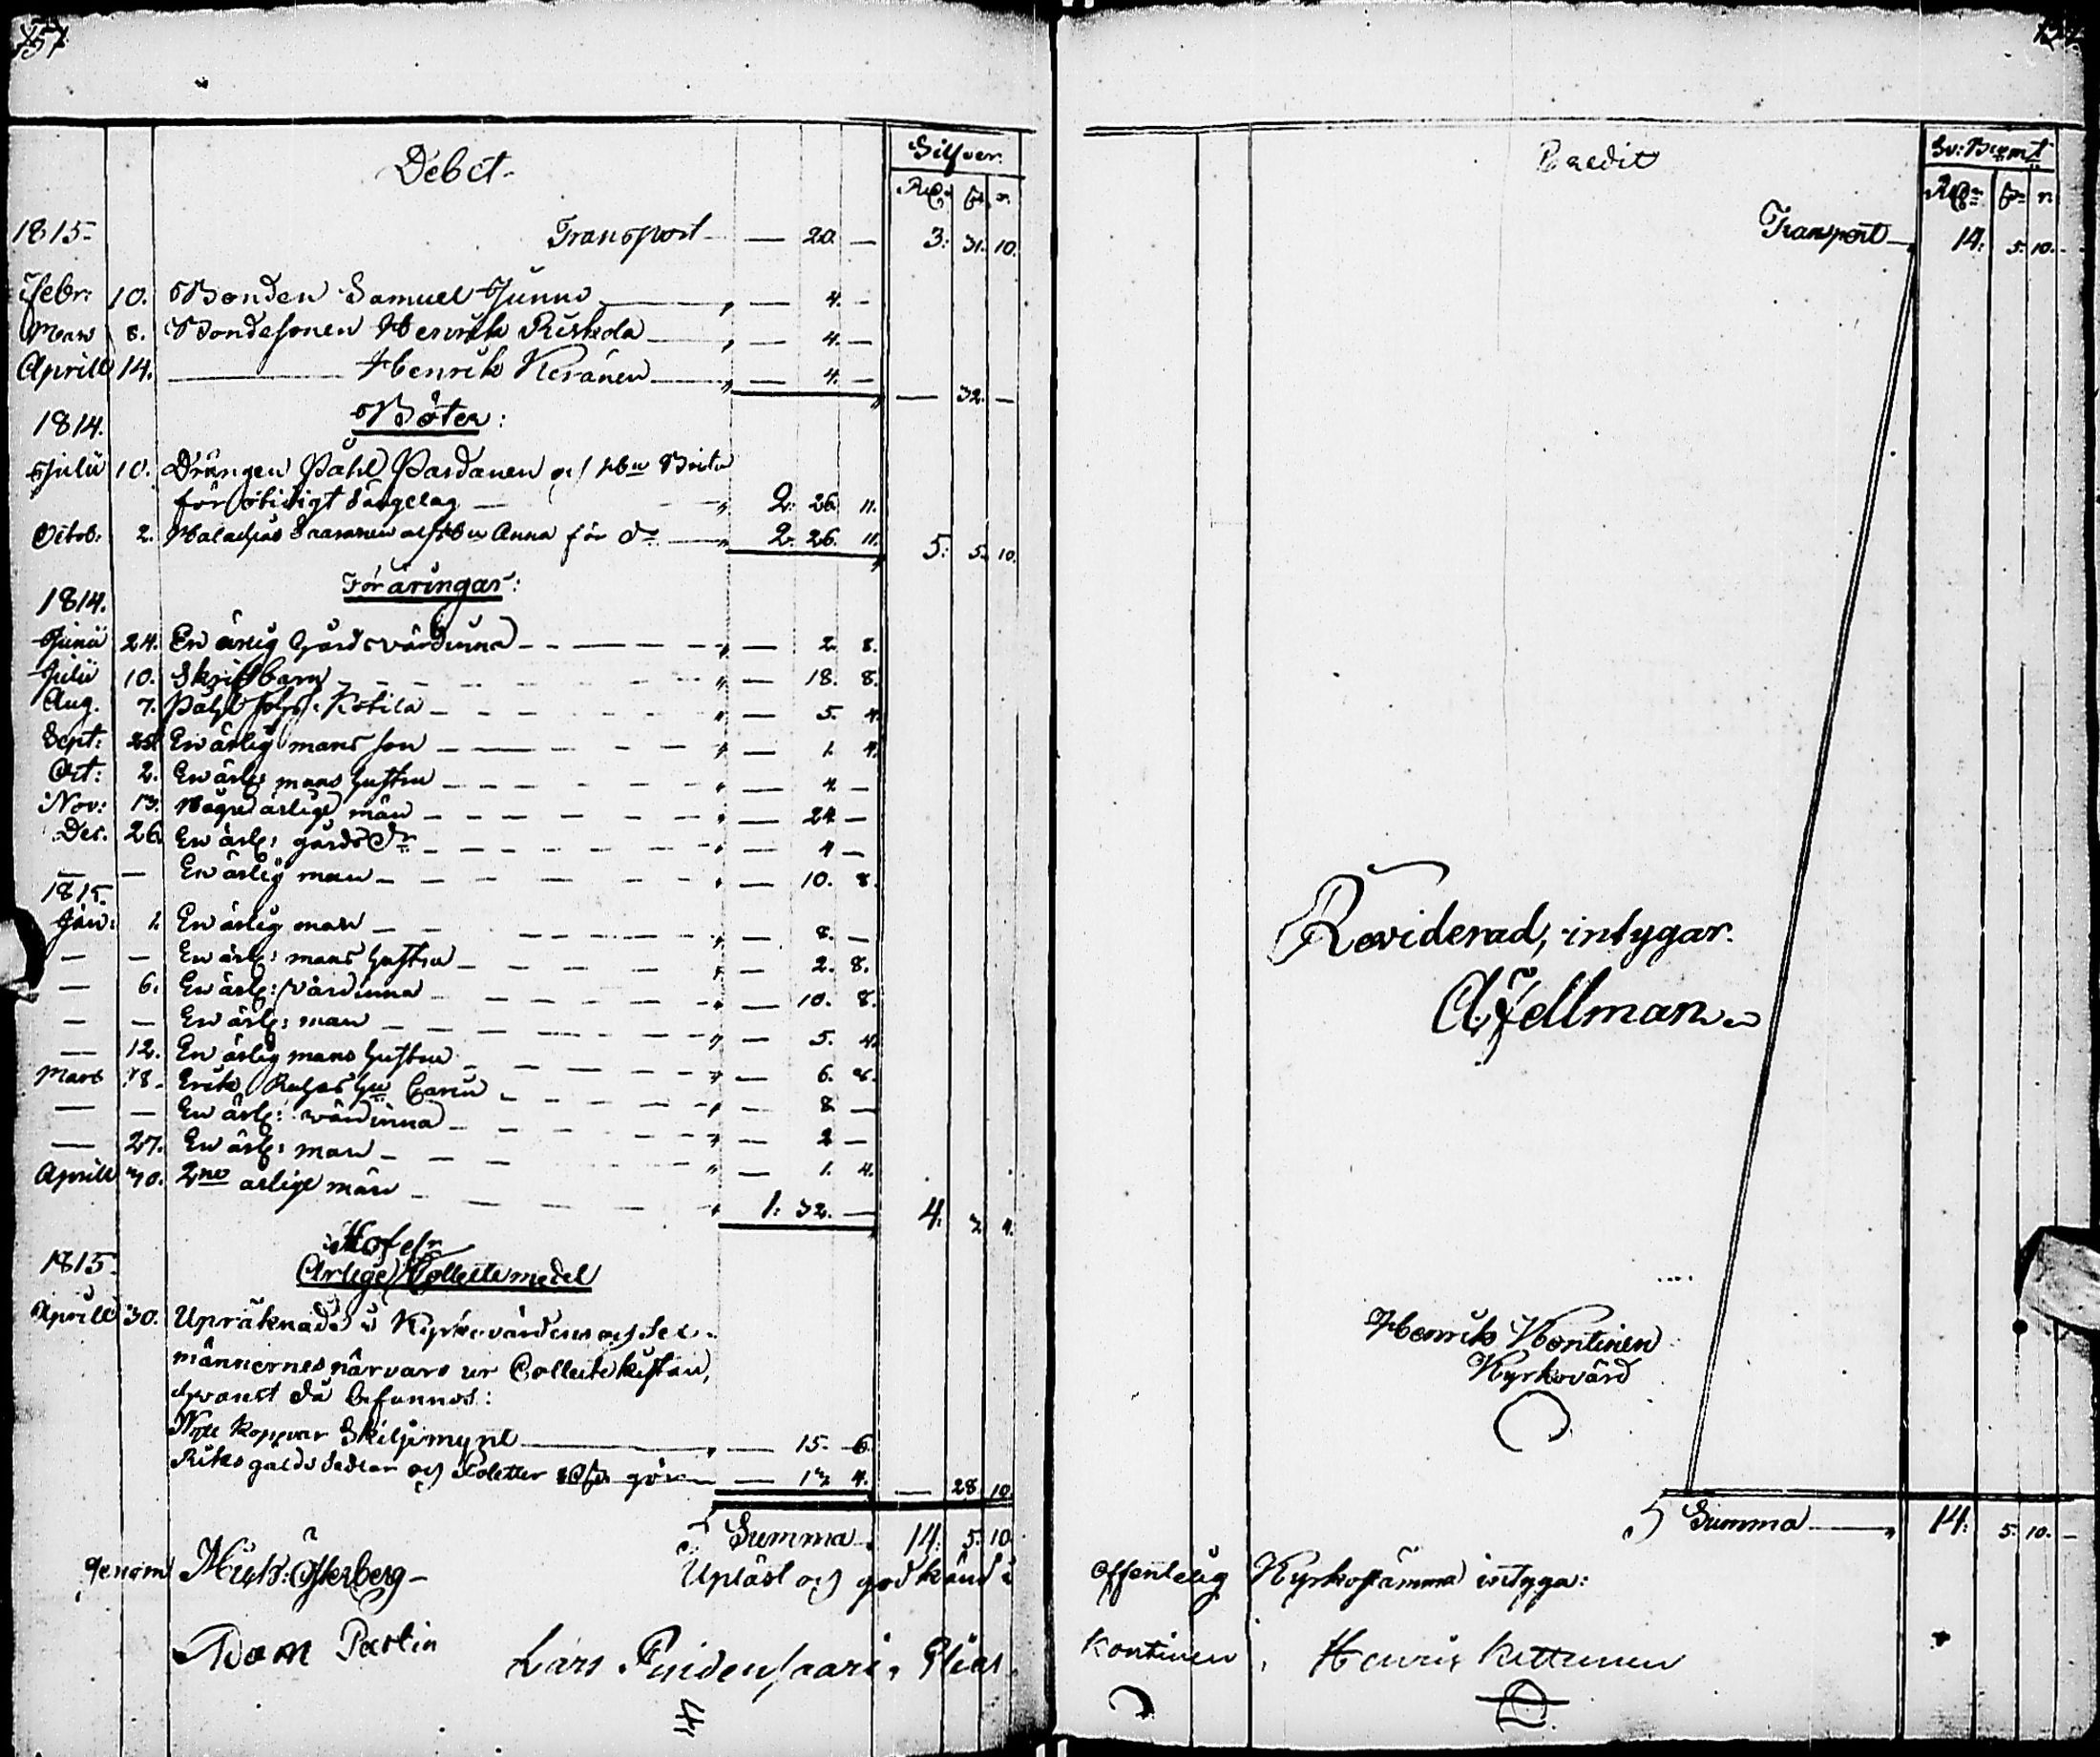 157
Debet
Silfver
1815. Transport — 20. — 3: 31. 10.
Febr: 10. Bonden Samuel Junno — 4. —
Mars 8. Bondesonen Henrik Riskola — 4. —
Aprill 14. — Henrik Keränen — 4. — — 32. —
1814. Böter:
Julii 10. Drängen Påhl Pardanen och hu Brita
för otidigt Sängelag — 2. 26. 11.
Octob: 2. Malachias Saarinen och hu Anna för do 2. 26. 11. 5: 5. 10.
1814. Föräringar:
Junii 24. En ärlig Gårdsvärdinna — 2. 8.
Julii 10. Skriftbarn — 18. 8.
Aug. 7. Påhl Kotila — 5. 4.
Sept: 25. En ärlig mans son — 1. 4.
Oct: 2. En ärl: mans hustru — 4. —
Nov: 13. Någre ärlige män — 24. —
Dec. 26. En ärl: gårds — 4. —
— — En ärlig man — 10. 8.
1815.
Jan: 1. En ärlig man — 8. —
— — En ärl: mans hustru — 2. 8.
— 6. En ärl: värdinna — 10. 8.
— — En ärl: man — 5. 4.
— 12. En ärlig mans hustru — 6. 8.
Mars 18. Erik hu Carin — 8 —
— — En ärl: wärdinna — 2 —
— 27. En ärl: man — 1. 4.
Aprill 30. 2ne ärlige män 1: 32. — 4: 3. 4.
1815. Ärlige Collecte medel
Aprill 30. Upräknades i Kyrkovärdens och Sex-
männernes närvaro ur Collecte kistan,
hvarest då befunnos:
Nytt koppar Skiljemynt — 15. 6.
Riksgälds Sedlar och Poletter gör — 13. 4. — 28. 10.
Summa 14: 5. 10.
genom Mich: Österberg
Upläst och godkänd i
Adam Partin Lars Puidensaari, Elias
Credit
Transport 14: 5. 10.
Reviderad, intygar.
A Fellman
Henrik Kontinen
Kyrkovärd
Summa 14: 5. 10.
offentelig Kyrkostämma intyga:
Kontinen, Henric Kettunen